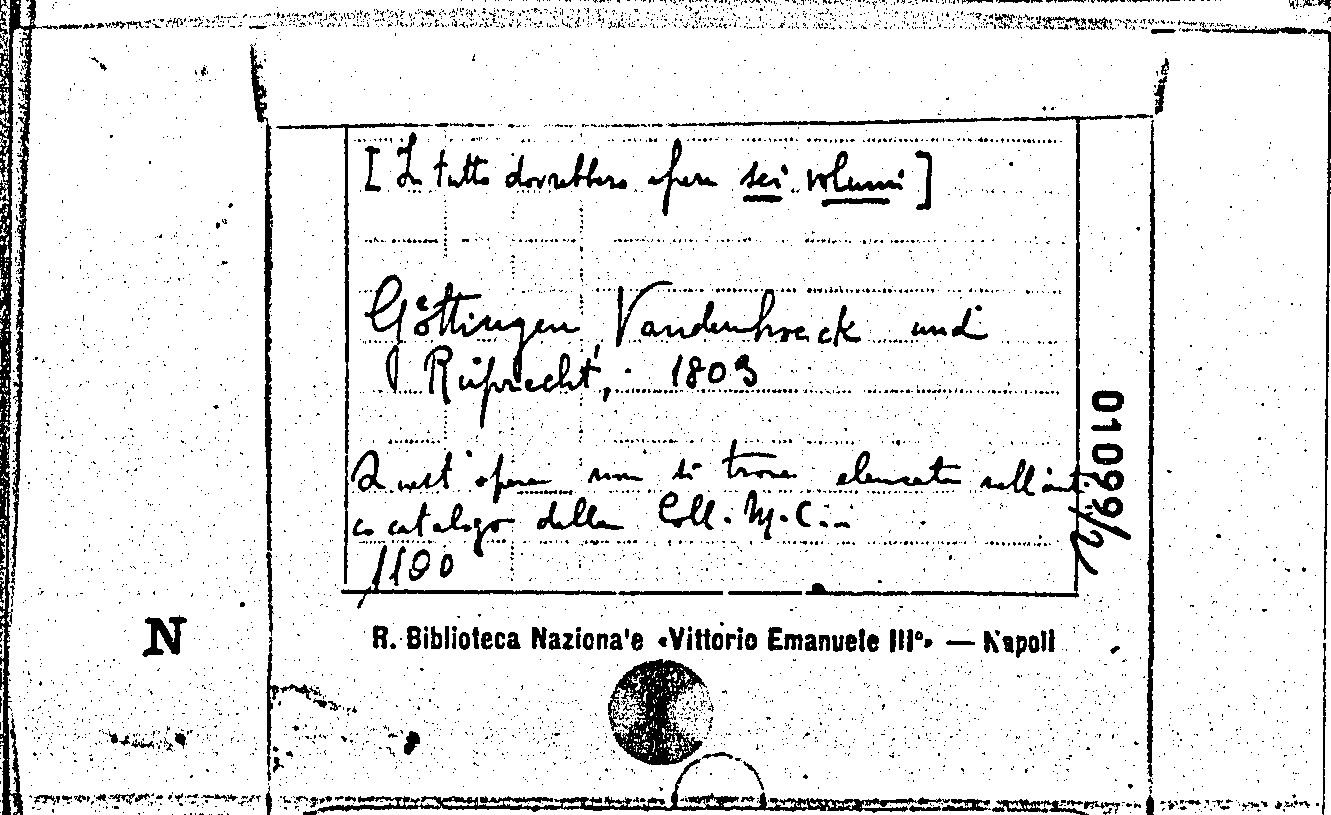 [In tutto dovrebbero essere sei volumi]
Göttingen, Vandenhoeck und
Ruprecht, 1803
Quest'opera non si trova elencata nell'anti
co catalogo della Coll. M. C.
1180
01099/2
N
R. Biblioteca Naziona'e «Vittorio Emanuele III°» — Napoli